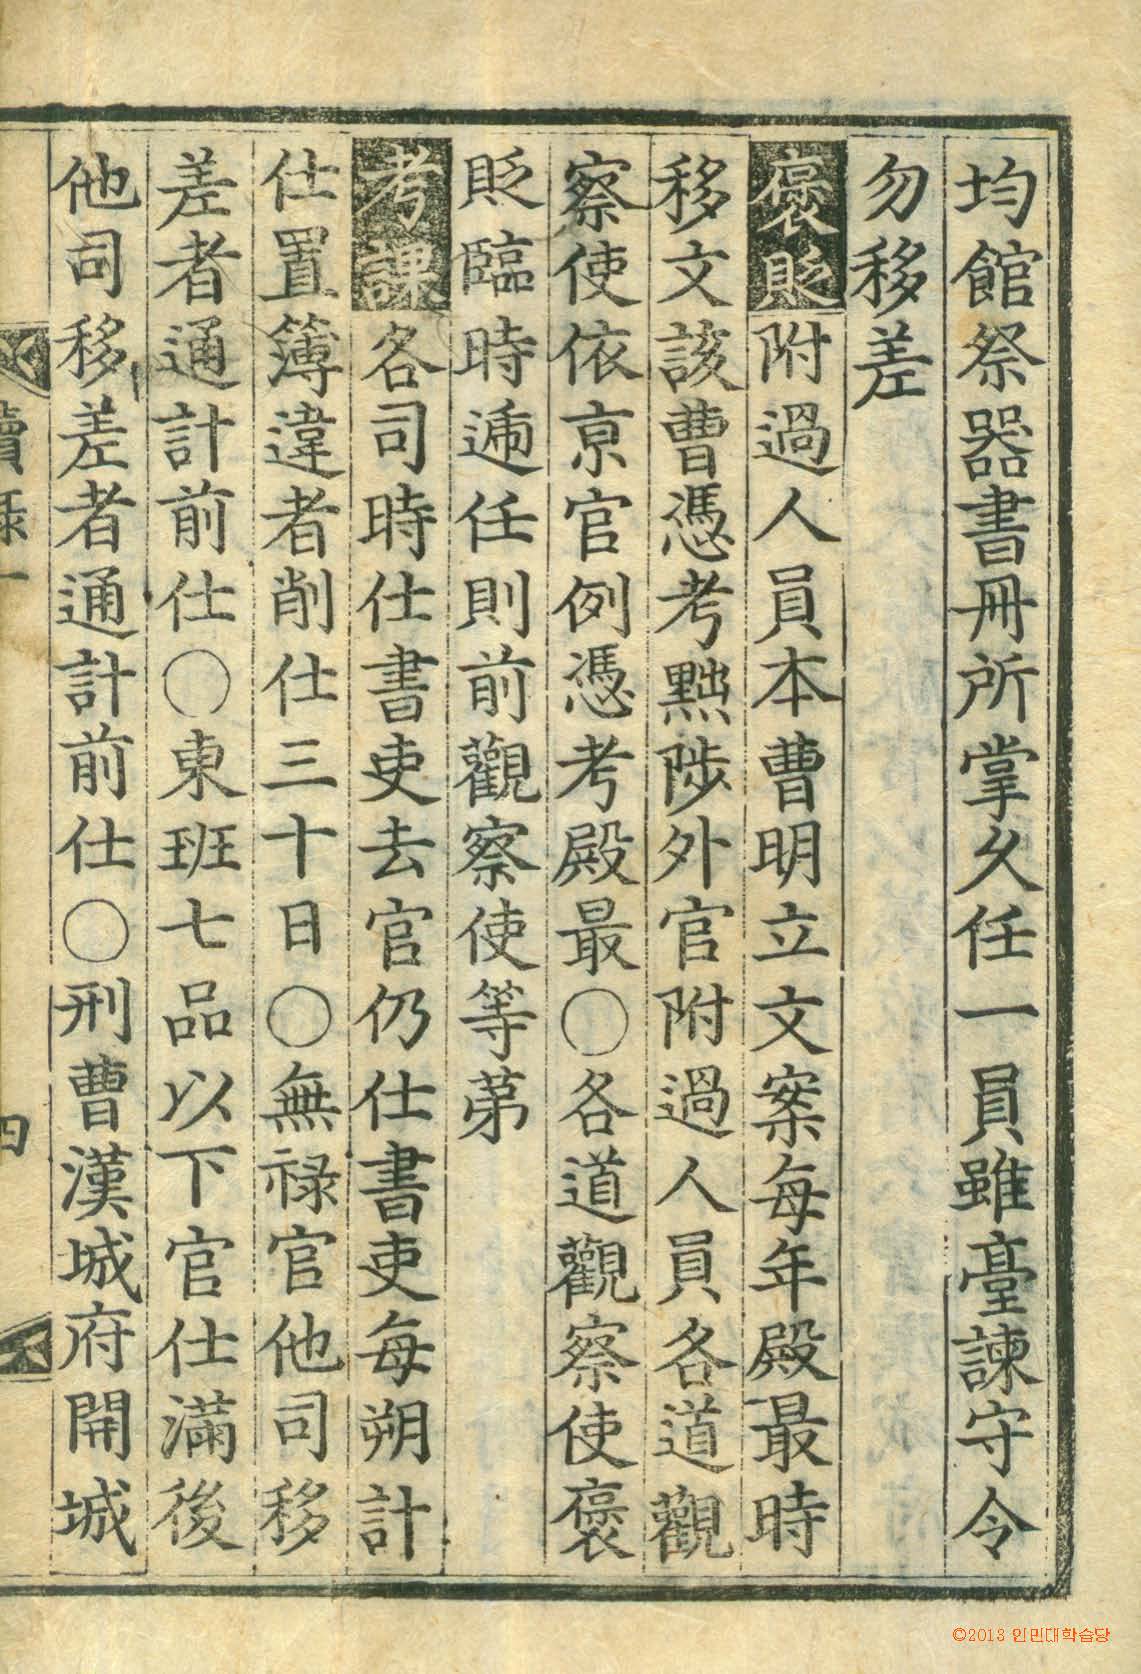 均館祭器書冊所掌久任一員雖臺諫守令
勿移差
褒貶附過人員本曹明立文案每年殿最時
移文該曹憑考黜陟外官附過人員各道觀
察使依京官例憑考殿最〇各道觀察使褒
貶臨時遞任則前觀察使等第
考課各司時仕書吏去官仍仕書吏每朔計
仕置簿違者削仕三十日〇無祿官他司移
差者通計前仕〇東班七品以下官仕滿後
他司移差者通計前仕〇刑曹漢城府開城
續錄一
四
©2013 인민대학습당